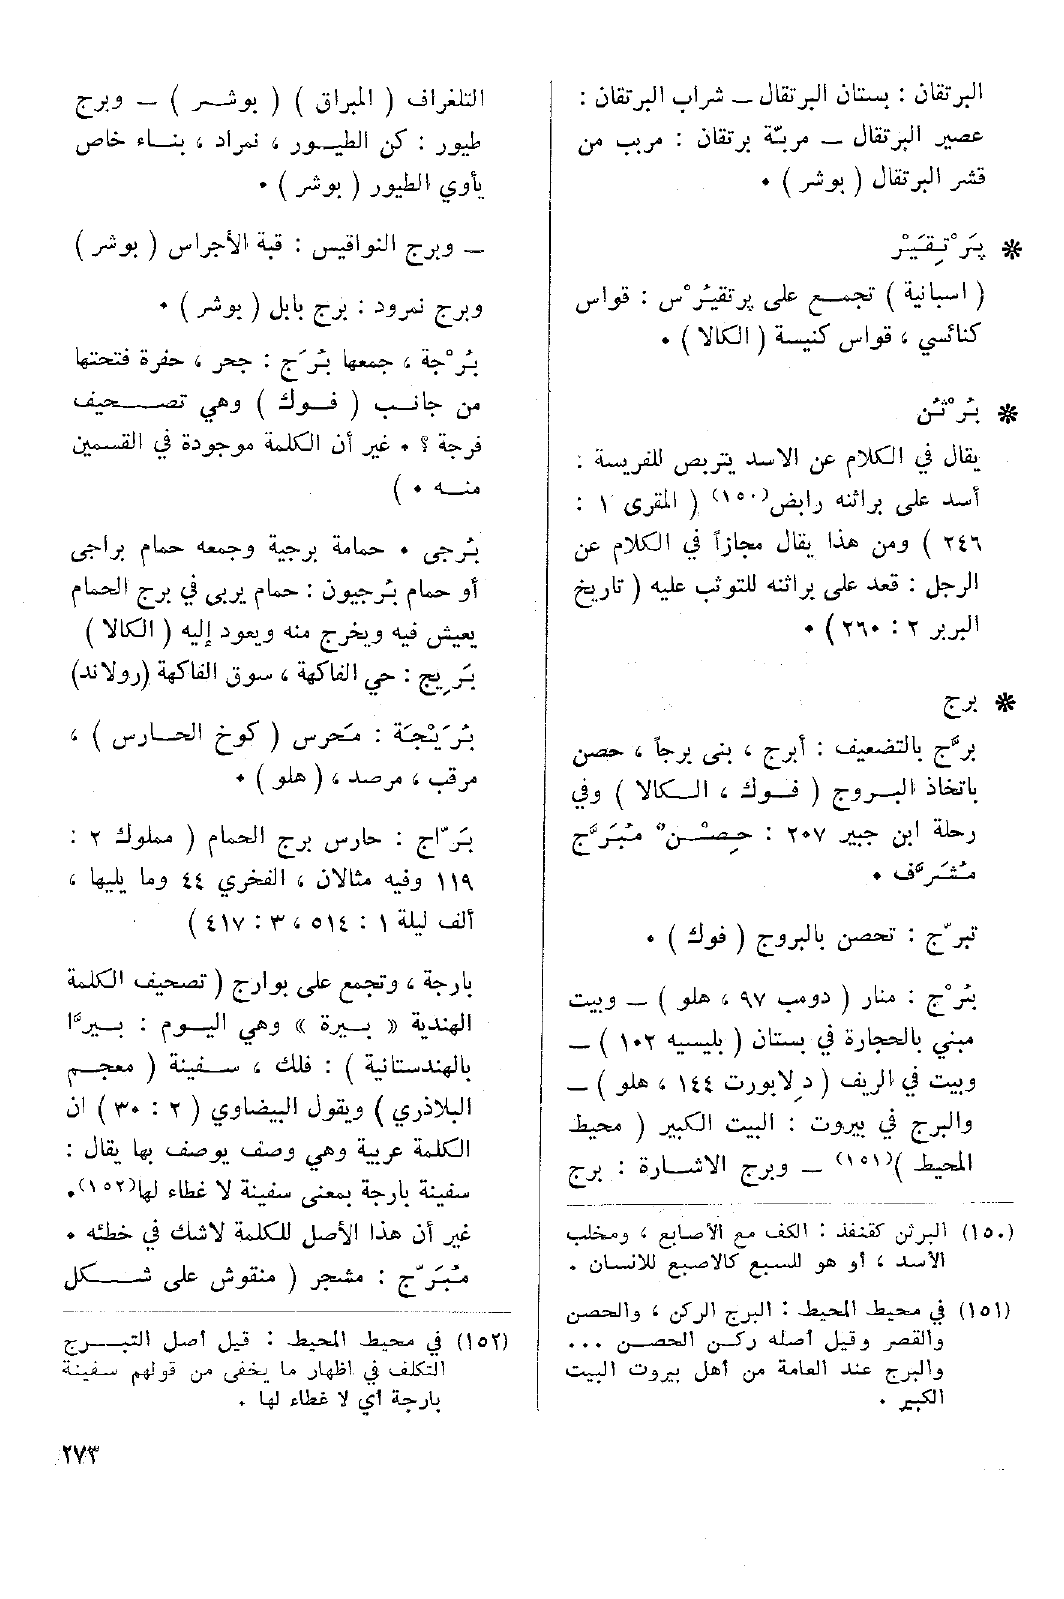 البرتقان : بستان البرتقال ــ شراب البرتقان :
عصير البرتقال ــ مربّة برتقان : مربب من
قشر البرتقال ( بوشر ) ٠
* پَرْتِقَيْر
( اسبانية ) تجمع على پرتقيرْس : قواس
كنائسي ، قواس كنيسة ( الكالا ) ٠
* بُرْثُن
يقال في الكلام عن الاسد يتربص للفريسة :
أسد على براثنه رابض(١٥٠) ( المقرى ١ :
٢٤٦ ) ومن هذا يقال مجازاً في الكلام عن
الرجل : قعد على براثنه للتوثب عليه ( تاريخ
البربر ٢ : ٢٦٠ ) ٠
* برج
برَّج بالتضعيف : أبرج ، بنى برجاً ، حصن
باتخاذ البروج ( فوك ، الكالا ) وفي
رحلة ابن جبير ٢٠٧ : حِصْنٌ مُبَرَّج
مُشَرَّف ٠
تبرّج : تحصن بالبروج ( فوك ) ٠
بُرْج : منار ( دومب ٩٧ ، هلو ) ــ وبيت
مبني بالحجارة في بستان ( بليسيه ١٠٢ ) ــ
وبيت في الريف ( دِ لابورت ١٤٤ ، هلو ) ــ
والبرج في بيروت : البيت الكبير ( محيط
المحيط )(١٥١) ــ وبرج الاشارة : برج
(١٥٠) البرثن كقنفذ : الكف مع الأصابع ، ومخلب
الأسد ، أو هو للسبع كالاصبع للانسان .
(١٥١) في محيط المحيط : البرج الركن ، والحصن
والقصر وقيل أصله ركن الحصن ...
والبرج عند العامة من أهل بيروت البيت
الكبير .
التلغراف ( المبراق ) ( بوشر ) ــ وبرج
طيور : كن الطيور ، نمراد ، بناء خاص
يأوي الطيور ( بوشر ) ٠
ــ وبرج النواقيس : قبة الأجراس ( بوشر )
وبرج نمرود : برج بابل ( بوشر ) ٠
بُرْجة ، جمعها بُرَج : جحر ، حفرة فتحتها
من جانب ( فوك ) وهي تصحيف
فرجة ؟ ٠ غير أن الكلمة موجودة في القسمين
منه ٠ )
بُرجى ٠ حمامة برجية وجمعه حمام براجى
أو حمام بُرجيون : حمام يربى في برج الحمام
يعيش فيه ويخرج منه ويعود إليه ( الكالا )
بَرِيج : حي الفاكهة ، سوق الفاكهة (رولاند)
بُرَيْجَة : مَحرس ( كوخ الحارس ) ،
مرقب ، مرصد ، ( هلو ) ٠
بَرّاج : حارس برج الحمام ( مملوك ٢ :
١١٩ وفيه مثالان ، الفخري ٤٤ وما يليها ،
ألف ليلة ١ : ٥١٤ ، ٣ : ٤١٧ )
بارجة ، وتجمع على بوارج ( تصحيف الكلمة
الهندية « بيرة » وهي اليوم : بيرَّا
بالهندستانية ) : فلك ، سفينة ( معجم
البلاذري ) ويقول البيضاوي ( ٢ : ٣٠ ) ان
الكلمة عربية وهي وصف يوصف بها يقال :
سفينة بارجة بمعنى سفينة لا غطاء لها(١٥٢)٠
غير أن هذا الأصل للكلمة لاشك في خطئه ٠
مُبَرّج : مشجر ( منقوش على شكل
(١٥٢) في محيط المحيط : قيل أصل التبرج
التكلف في اظهار ما يخفى من قولهم سفينة
بارجة أي لا غطاء لها .
٢٧٣